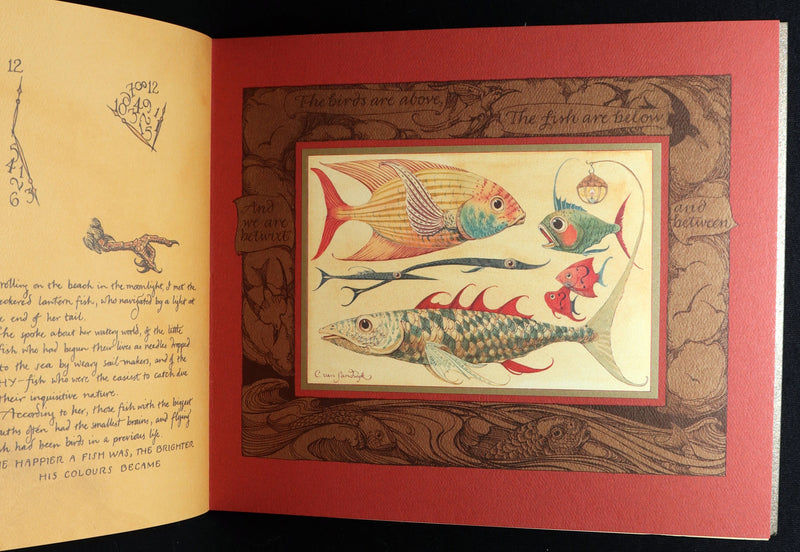 12
rolling on the beach in the moonlight, I met the
ckered lantern fish, who navigated by a light at
e end of her tail.
he spoke about her watery world, of the little
fish who had begun their lives as needles dropped
to the sea by weary sail-makers, and of the
HY-fish who were the easiest to catch due
their inquisitive nature.
According to her, those fish with the biggest
uths often had the smallest brains, and flying
sh had been birds in a previous life.
E HAPPIER A FISH WAS, THE BRIGHTER
HIS COLOURS BECAME
The birds are above,
The fish are below
And
we are
betwixt
and
between
C van Sandwyk